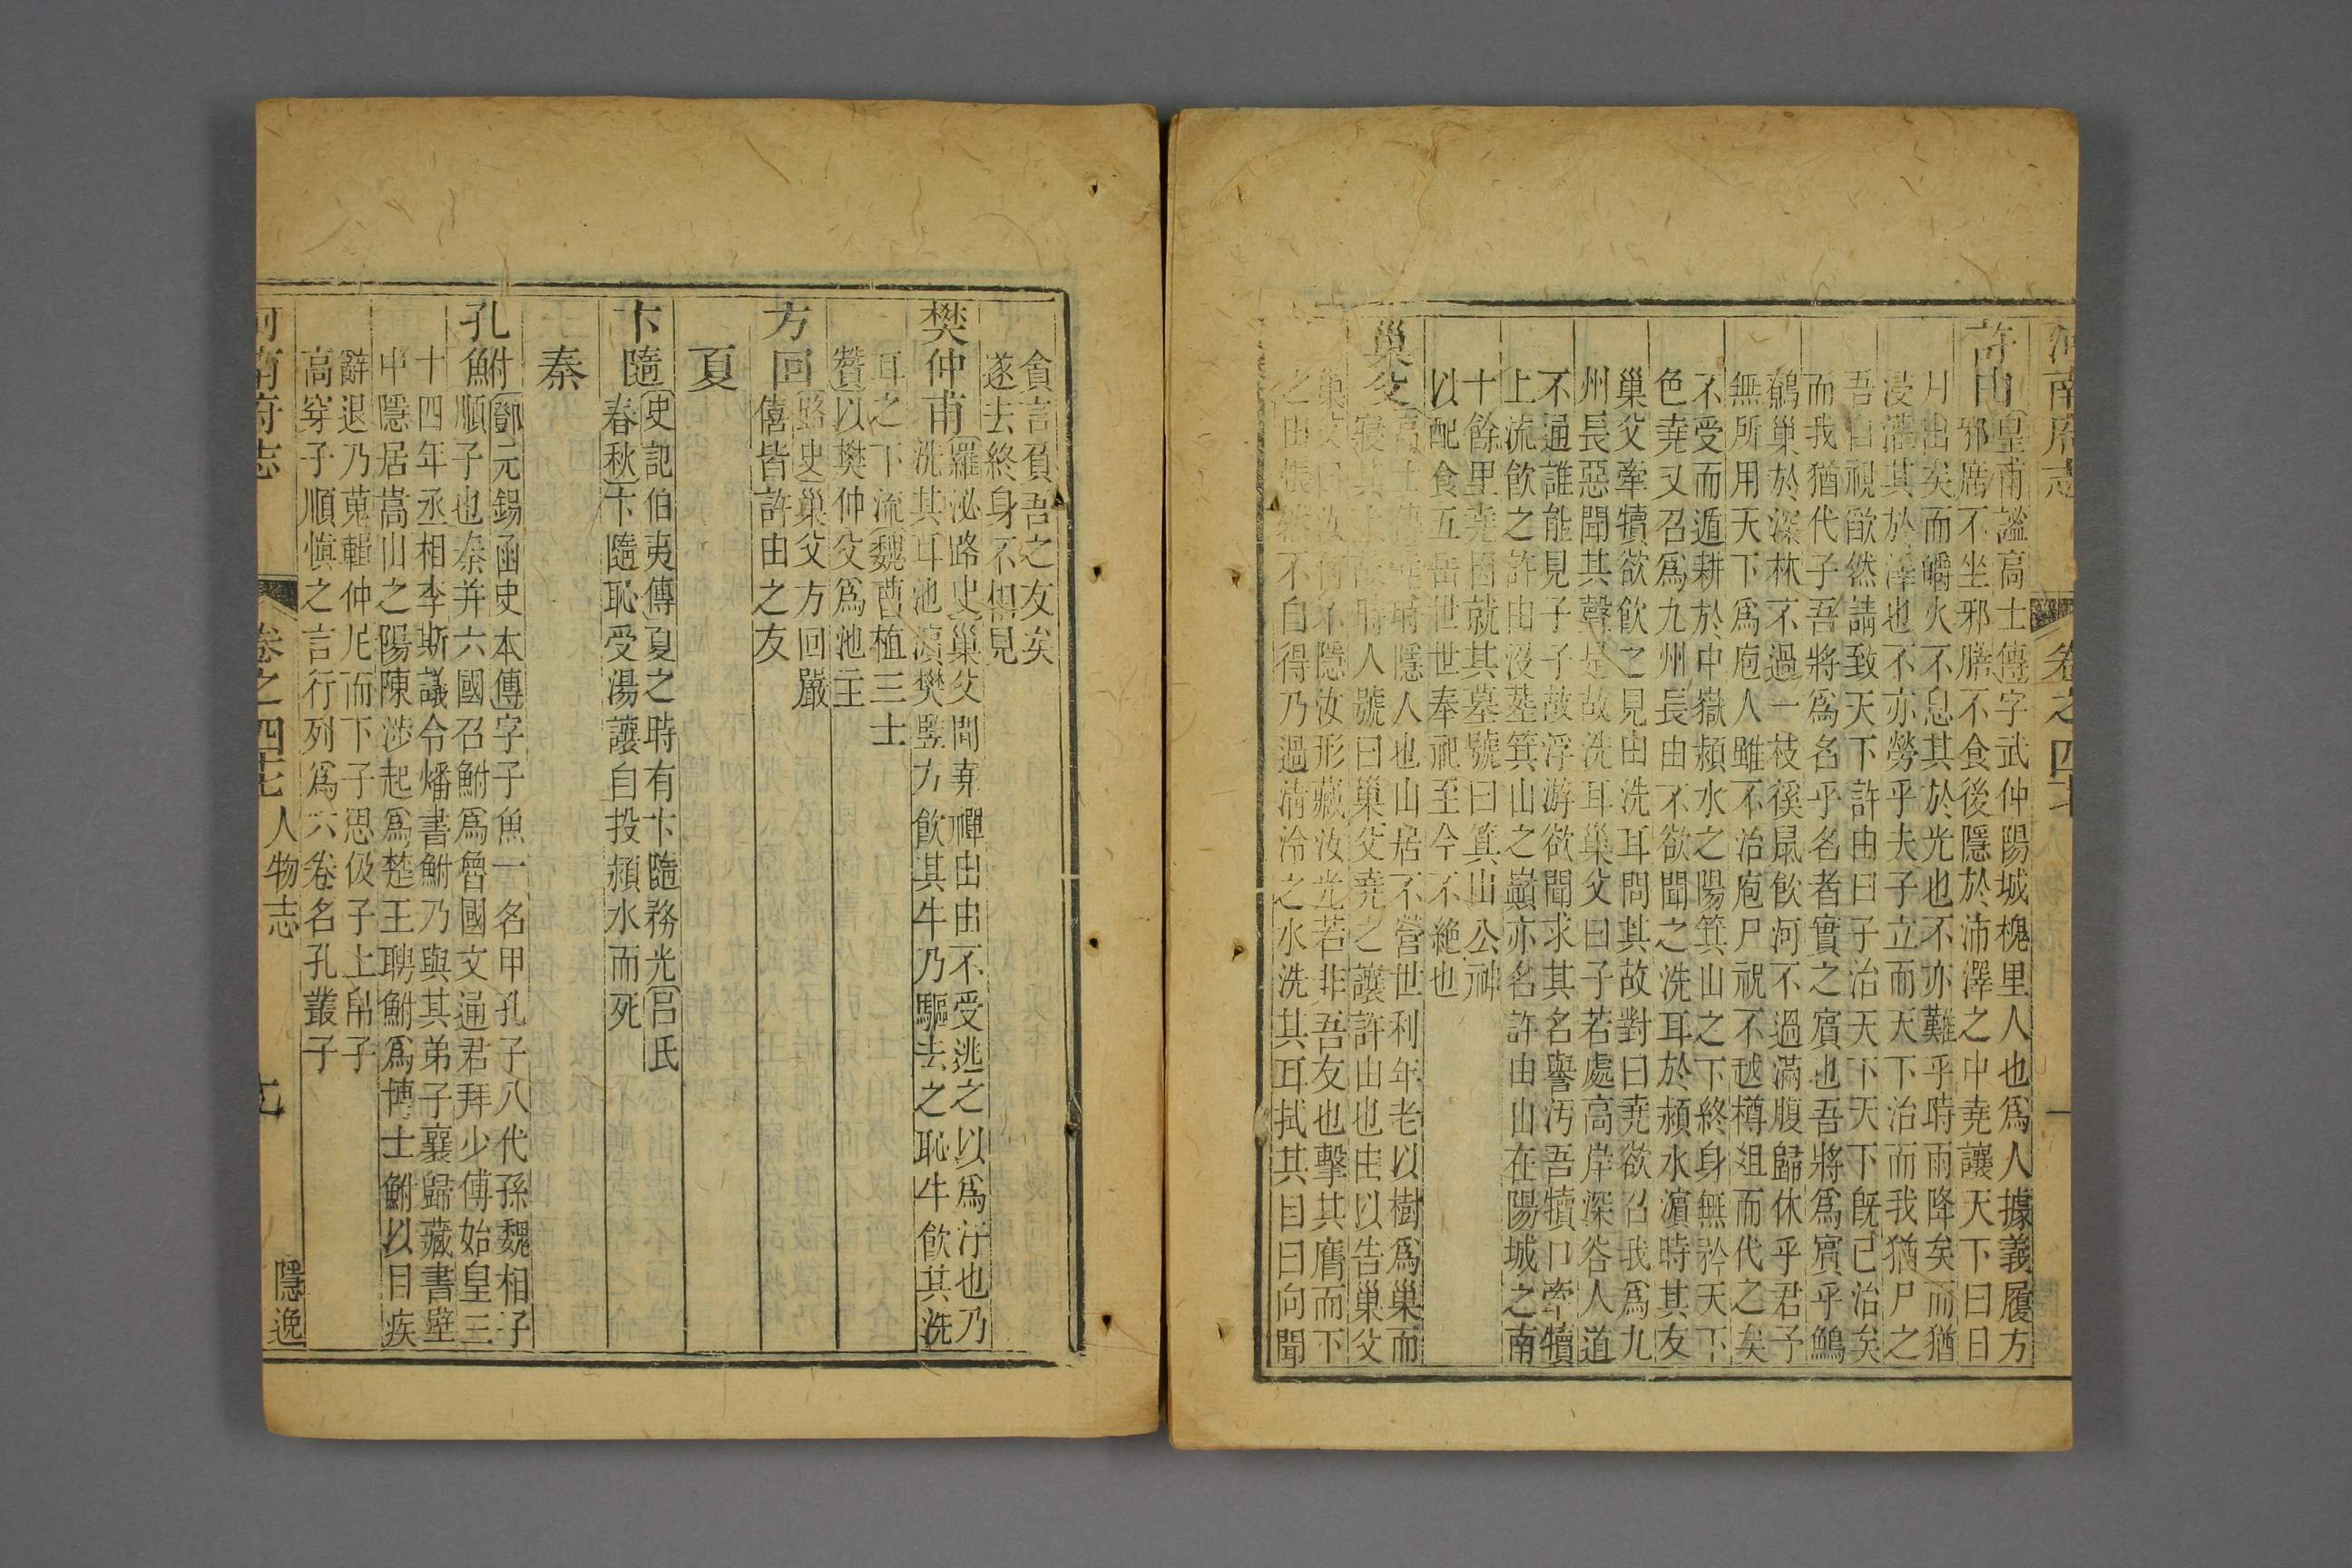 河南府志
卷之四十七
許由
皇甫謐高士傳字武仲陽城槐里人也爲人據義履方
邪席不坐邪膳不食後隱於沛澤之中堯讓天下曰日
月出矣而爝火不息其於光也不亦難乎時雨降矣而猶
浸灌其於澤也不亦勞乎夫子立而天下治而我猶尸之
吾自視歉然請致天下許由曰子治天下天下既已治矣
而我猶代子吾將爲名乎名者實之賓也吾將爲賓乎鷦
鷯巢於深林不過一枝徯鼠飮河不過滿腹歸休乎君子
無所用天下爲庖人雖不治庖尸祝不越樽俎而代之矣
不受而遁耕於中嶽潁水之陽箕山之下終身無衿天下
色堯又召爲九州長由不欲聞之洗耳於潁水濵時其友
巢父牽犢欲飮之見由洗耳問其故對曰堯欲召我爲九
州長惡聞其聲是故洗耳巢父曰子若處高岸深谷人道
不通誰能見子子故浮游欲聞求其名譽汚吾犢口牽犢
上流飮之許由沒塟箕山之巓亦名許由山在陽城之南
十餘里堯因就其墓號曰箕山公神
以配食五岳世世奉祀至今不絶也
巢父
高士傳堯時隱人也山居不營世利年老以樹爲巢而
寢其上故時人號曰巢父堯之讓許由也由以告巢父
巢父曰汝何不隱汝形藏汝光若非吾友也擊其膺而下
之由悵然不自得乃過淸泠之水洗其耳拭其目曰向聞
貪言負吾之友矣
遂去終身不相見
樊仲甫
羅泌路史巢父聞堯禪由由不受逃之以爲汙也乃
洗其耳池濵樊竪方飮其牛乃驅去之恥牛飮其洗
耳之下流魏曹植三士
贊以樊仲父爲池主
方回
路史巢父方回嚴
僖皆許由之友
夏
卞隨
史記伯夷傳夏之時有卞隨務光呂氏
春秋卞隨恥受湯讓自投潁水而死
秦
孔鮒
鄧元錫函史本傳字子魚一名甲孔子八代孫魏相子
順子也秦并六國召鮒爲魯國文通君拜少傅始皇三
十四年丞相李斯議令燔書鮒乃與其弟子襄歸藏書壁
中隱居嵩山之陽陳涉起爲楚王聘鮒爲博士鮒以目疾
辭退乃蒐輯仲尼而下子思伋子上帛子
高穿子順愼之言行列爲六卷名孔叢子
河南府志
卷之四十七
人物志
隱逸